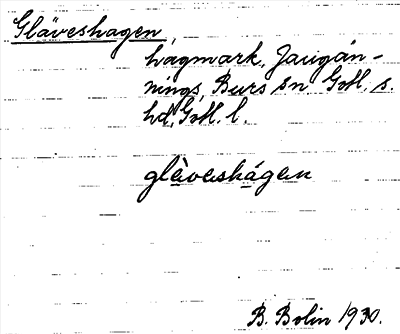 Gläveshagen,
hagmark, Jaugån-
nings, Burs sn Gotl. s.
hd, Gotl. l.
glèveshágen
B. Bolin 1930.